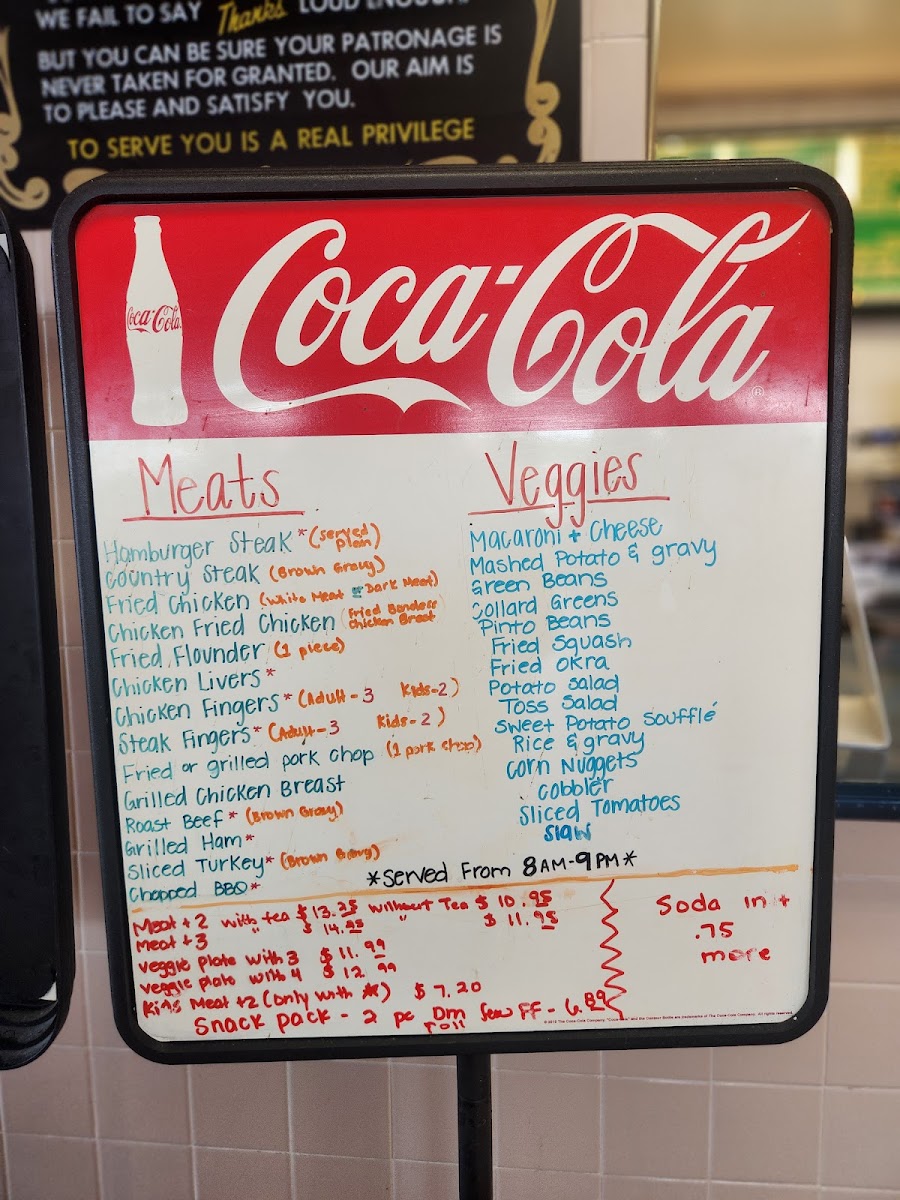 WE FAIL TO SAY Thanks LOUD ENOUGH.
BUT YOU CAN BE SURE YOUR PATRONAGE IS
NEVER TAKEN FOR GRANTED. OUR AIM IS
TO PLEASE AND SATISFY YOU.
TO SERVE YOU IS A REAL PRIVILEGE
Coca-Cola
Coca-Cola®
Meats
Hamburger Steak* (served plain)
Country Steak (Brown Gravy)
Fried Chicken (White Meat or Dark Meat)
Chicken Fried Chicken (Fried Boneless Chicken Breast
Fried Flounder (1 piece)
Chicken Livers*
Chicken Fingers* (Adult-3 Kids-2)
Steak Fingers* (Adult-3 Kids-2)
Fried or grilled pork chop (1 pork chop)
Grilled Chicken Breast
Roast Beef* (Brown Gravy)
Grilled Ham*
Sliced Turkey* (Brown Gravy)
Chopped BBQ*
Veggies
Macaroni + Cheese
Mashed Potato & gravy
Green Beans
Collard Greens
Pinto Beans
Fried Squash
Fried Okra
Potato Salad
Toss Salad
Sweet Potato Soufflé
Rice & gravy
Corn Nuggets
Cobbler
Sliced Tomatoes
Slaw
*Served From 8AM-9PM*
Meat +2 with tea $13.35 without Tea $10.95
Meat +3 " $14.35 " $11.95
Veggie plate with 3 $11.99
Veggie plate with 4 $12.99
Kids Meat +2 (only with *) $7.20
Snack pack - 2 pc Drn roll FF - 6.89
Soda in +
.75
more